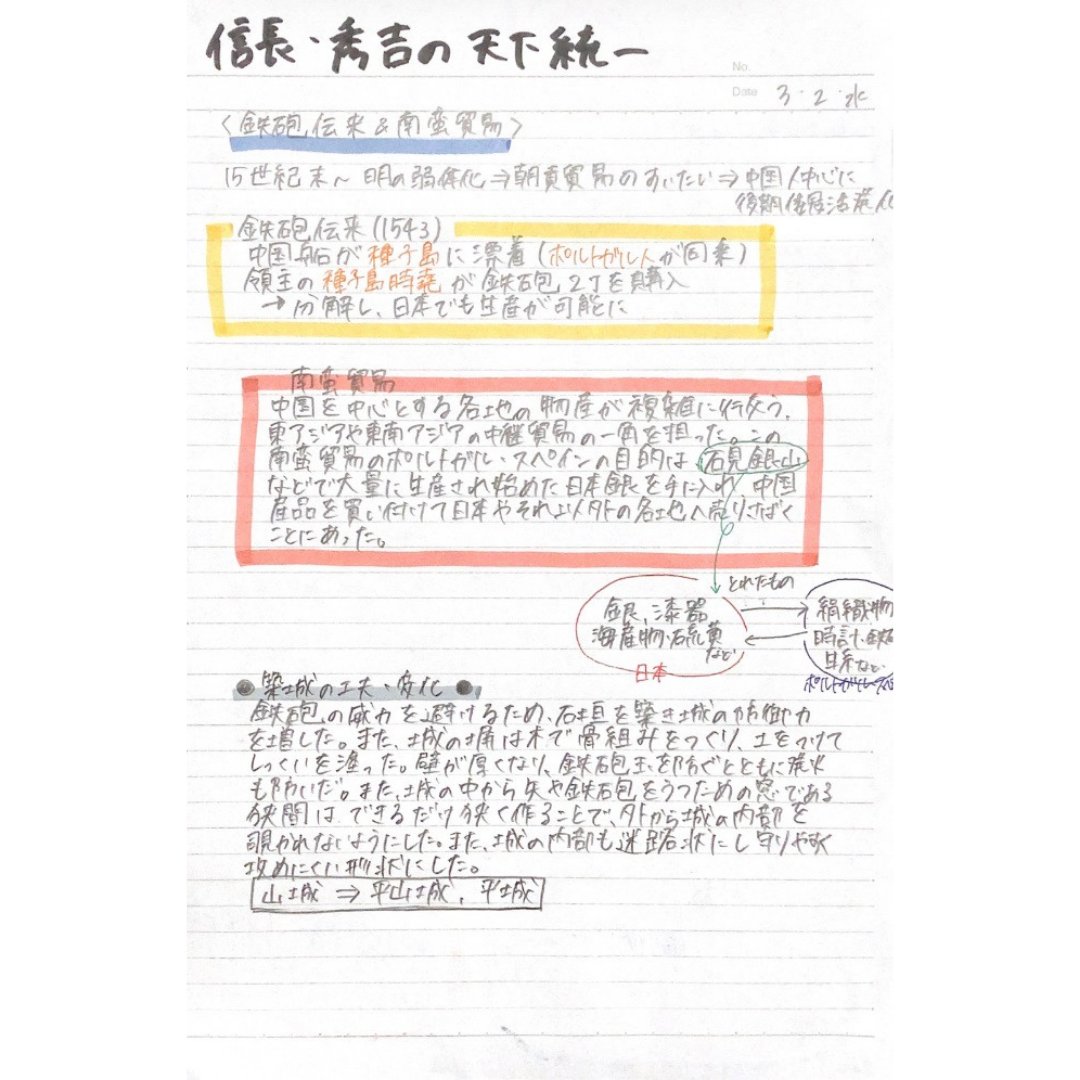 信長・秀吉の天下統一
No.
Date 3・2・水
〈鉄砲伝来&南蛮貿易〉
15世紀末～ 明の弱体化⇒朝貢貿易のすいたい⇒中国人中心に
後期倭寇活発化
鉄砲伝来(1543)
中国船が種子島に漂着(ポルトガル人が同乗)
領主の種子島時堯が鉄砲2丁を購入
→分解し、日本でも生産が可能に
南蛮貿易
中国を中心とする各地の物産が複雑に行交う、
東アジアや東南アジアの中継貿易の一角を担った。この
南蛮貿易のポルトガル・スペインの目的は石見銀山
などで大量に生産され始めた日本銀を手に入れ、中国
産品を買い付けて日本やそれ以外の各地へ売りさばく
ことにあった。
とれたもの
銀、漆器
海産物・硫黄
など
日本
絹織物
時計、鉄砲
生糸など
ポルトガル・スペ
● 築城の工夫・変化 ●
鉄砲の威力を避けるため、石垣を築き城の防御力
を増した。また、城の塀は木で骨組みをつくり、土をつけて
しっくいを塗った。壁が厚くなり、鉄砲玉を防ぐとともに発火
も防いだ。また、城の中から矢や鉄砲をうつための窓である
狭間はできるだけ狭く作ることで、外から城の内部を
覗かれないようにした。また、城の内部も迷路状にし守りやすく
攻めにくい形状にした。
山城 ⇒ 平山城、平城